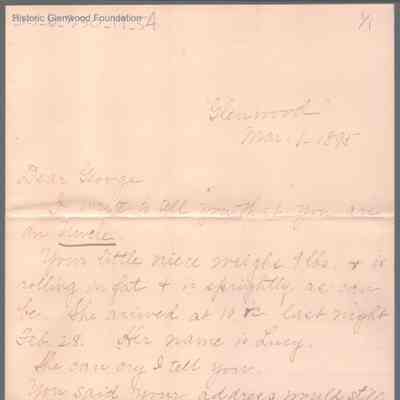 Historic Glenwood Foundation
1/1
"Glenwood"
Mar. 1-1895
Dear George
I write to tell you that you are
an Uncle.
Your little niece weighs 9 lbs. & is
rolling in fat & is sprightly as can
be. She arrived at 10 last night
Feb. 28. Her name is Lucy.
She can cry I tell you.
You said your address would still